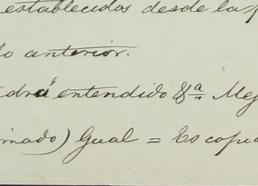 establecidos desde la
lo anterior.
drá entendido Sª Meg
mado) Gual = Es copia